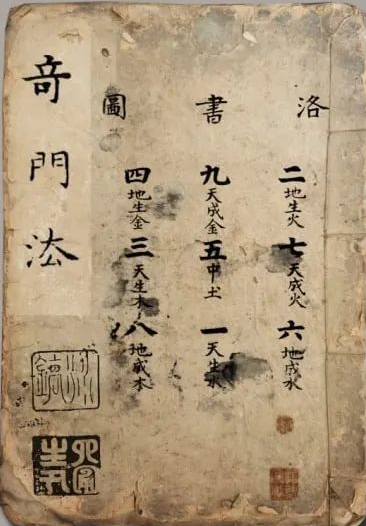 洛書圖
二地生火七天成火六地成水
九天成金五中土一天生水
四地生金三天生木八地成木
竒門法